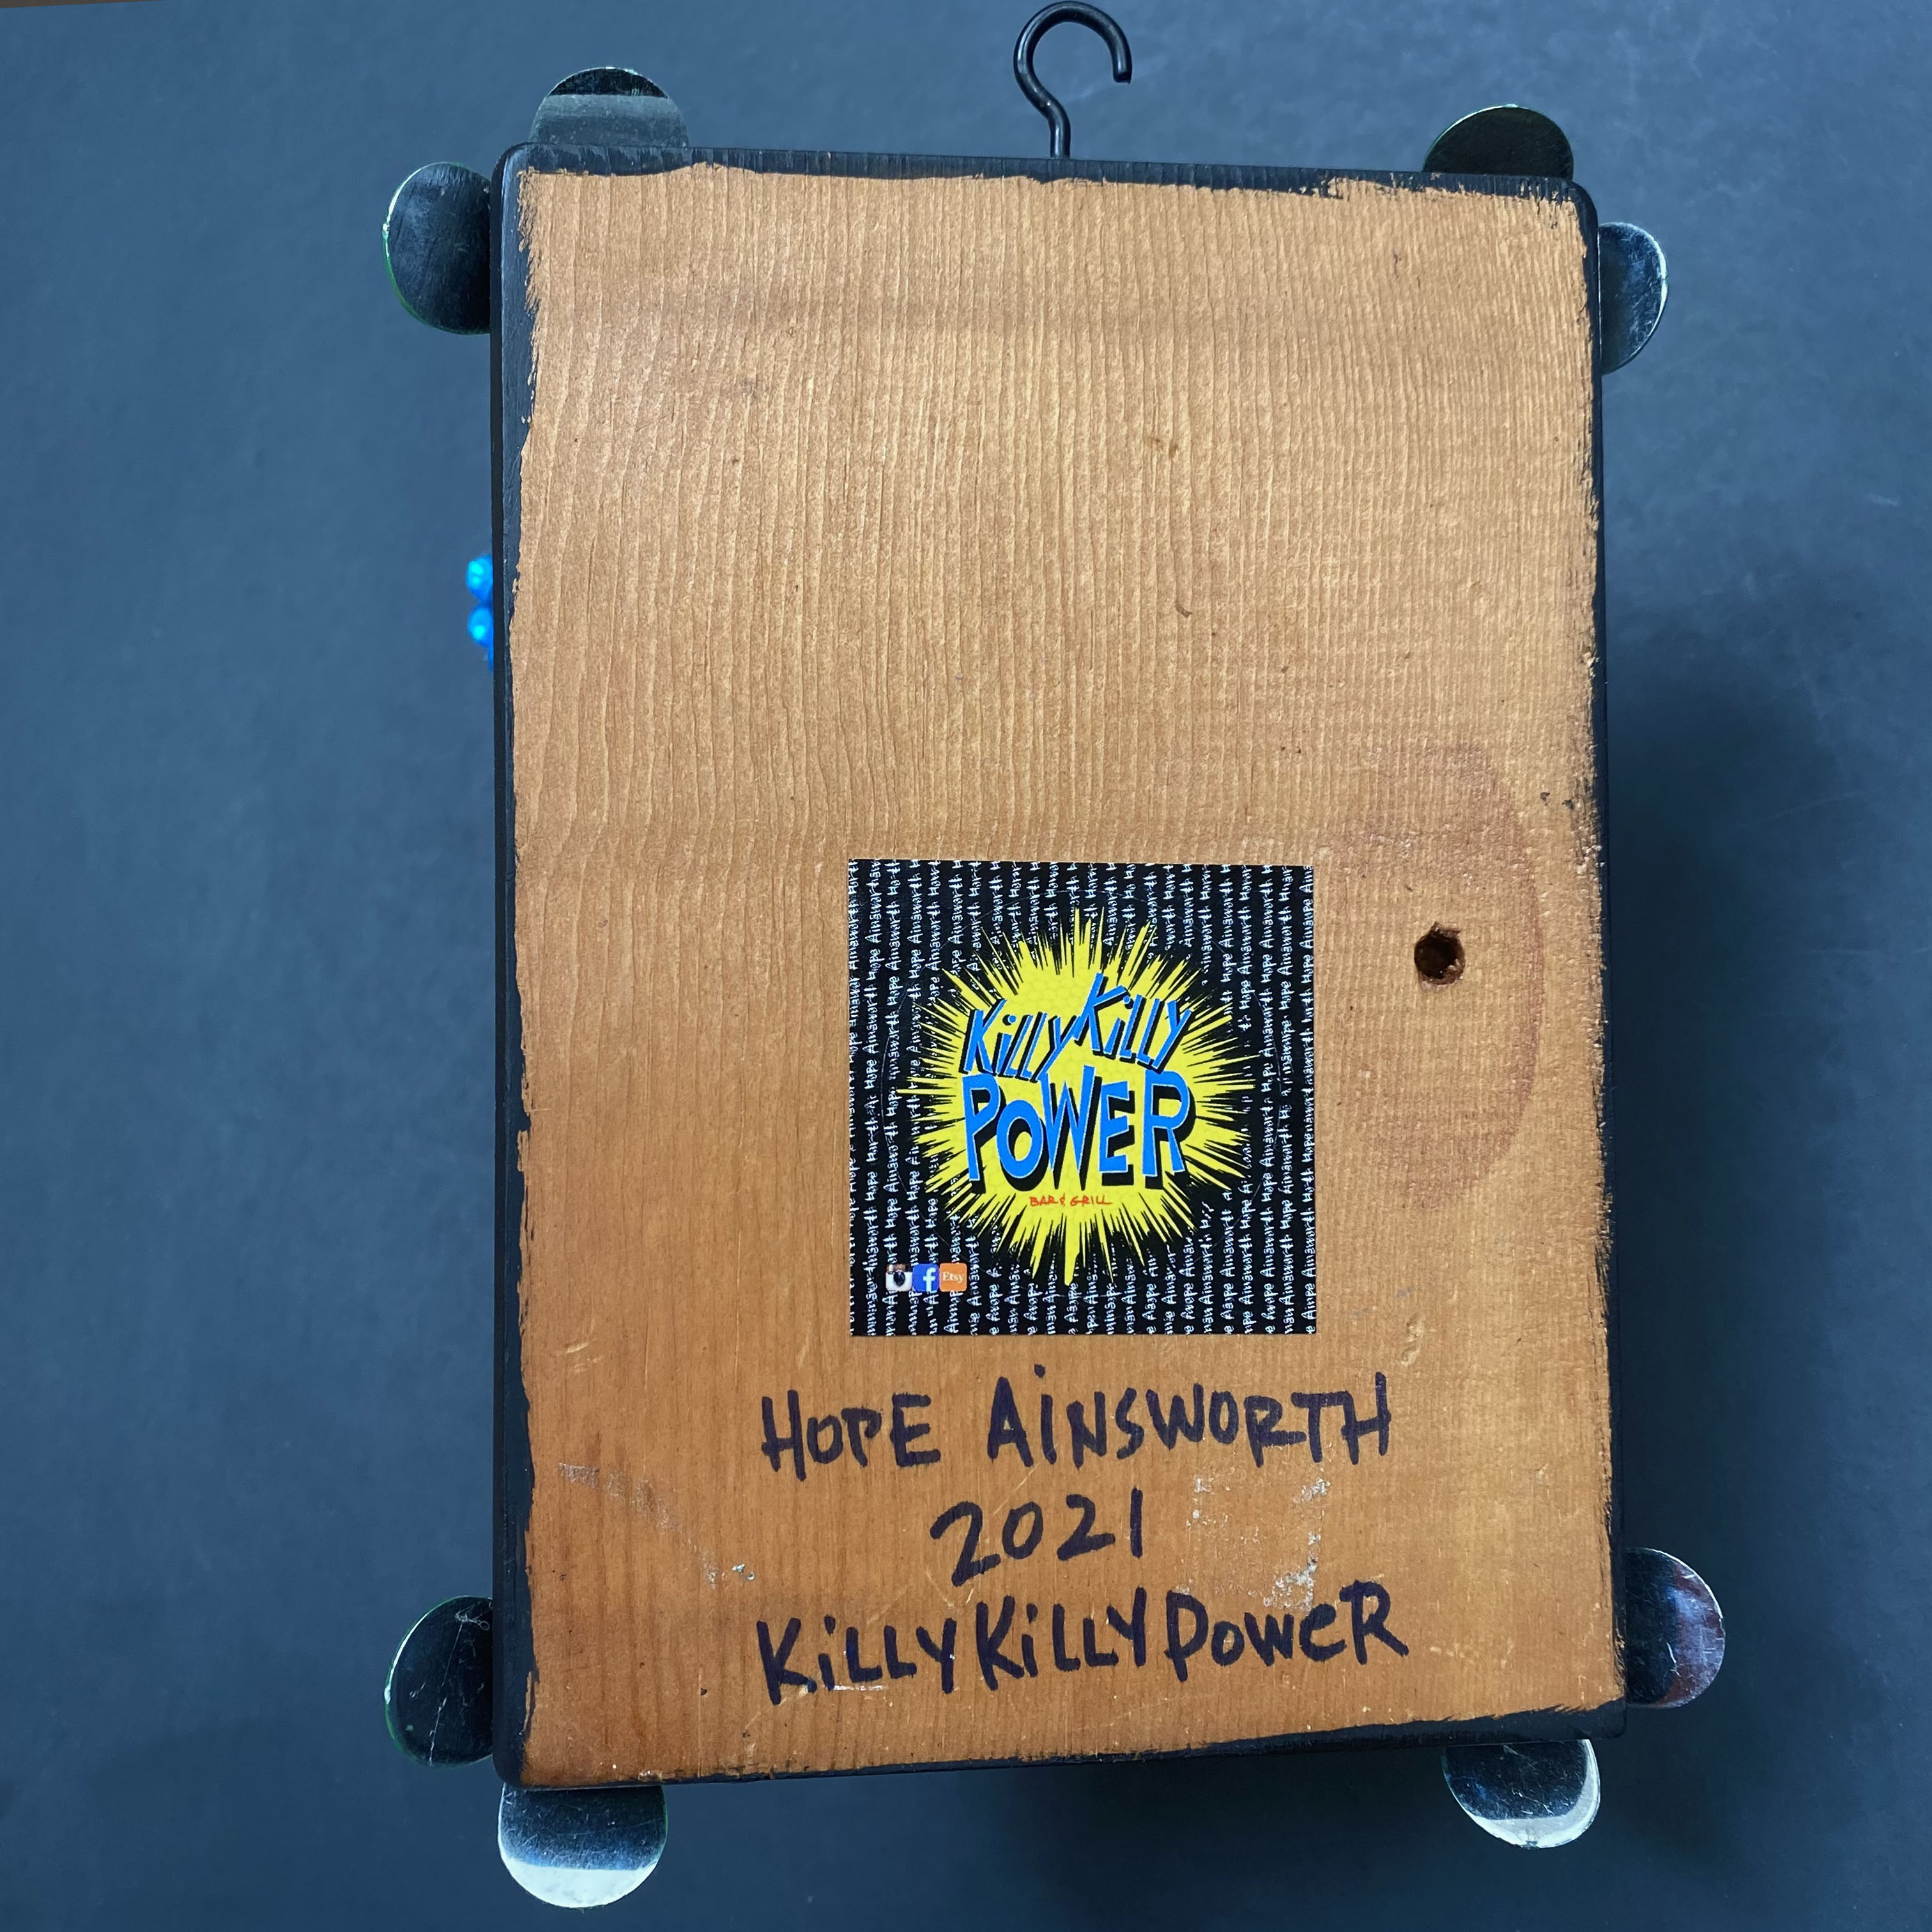 KiLLY KiLLY
POWER
BAR & GRILL
Etsy
HOPE AiNSWORTH
2021
KiLLYKiLLYPOWeR